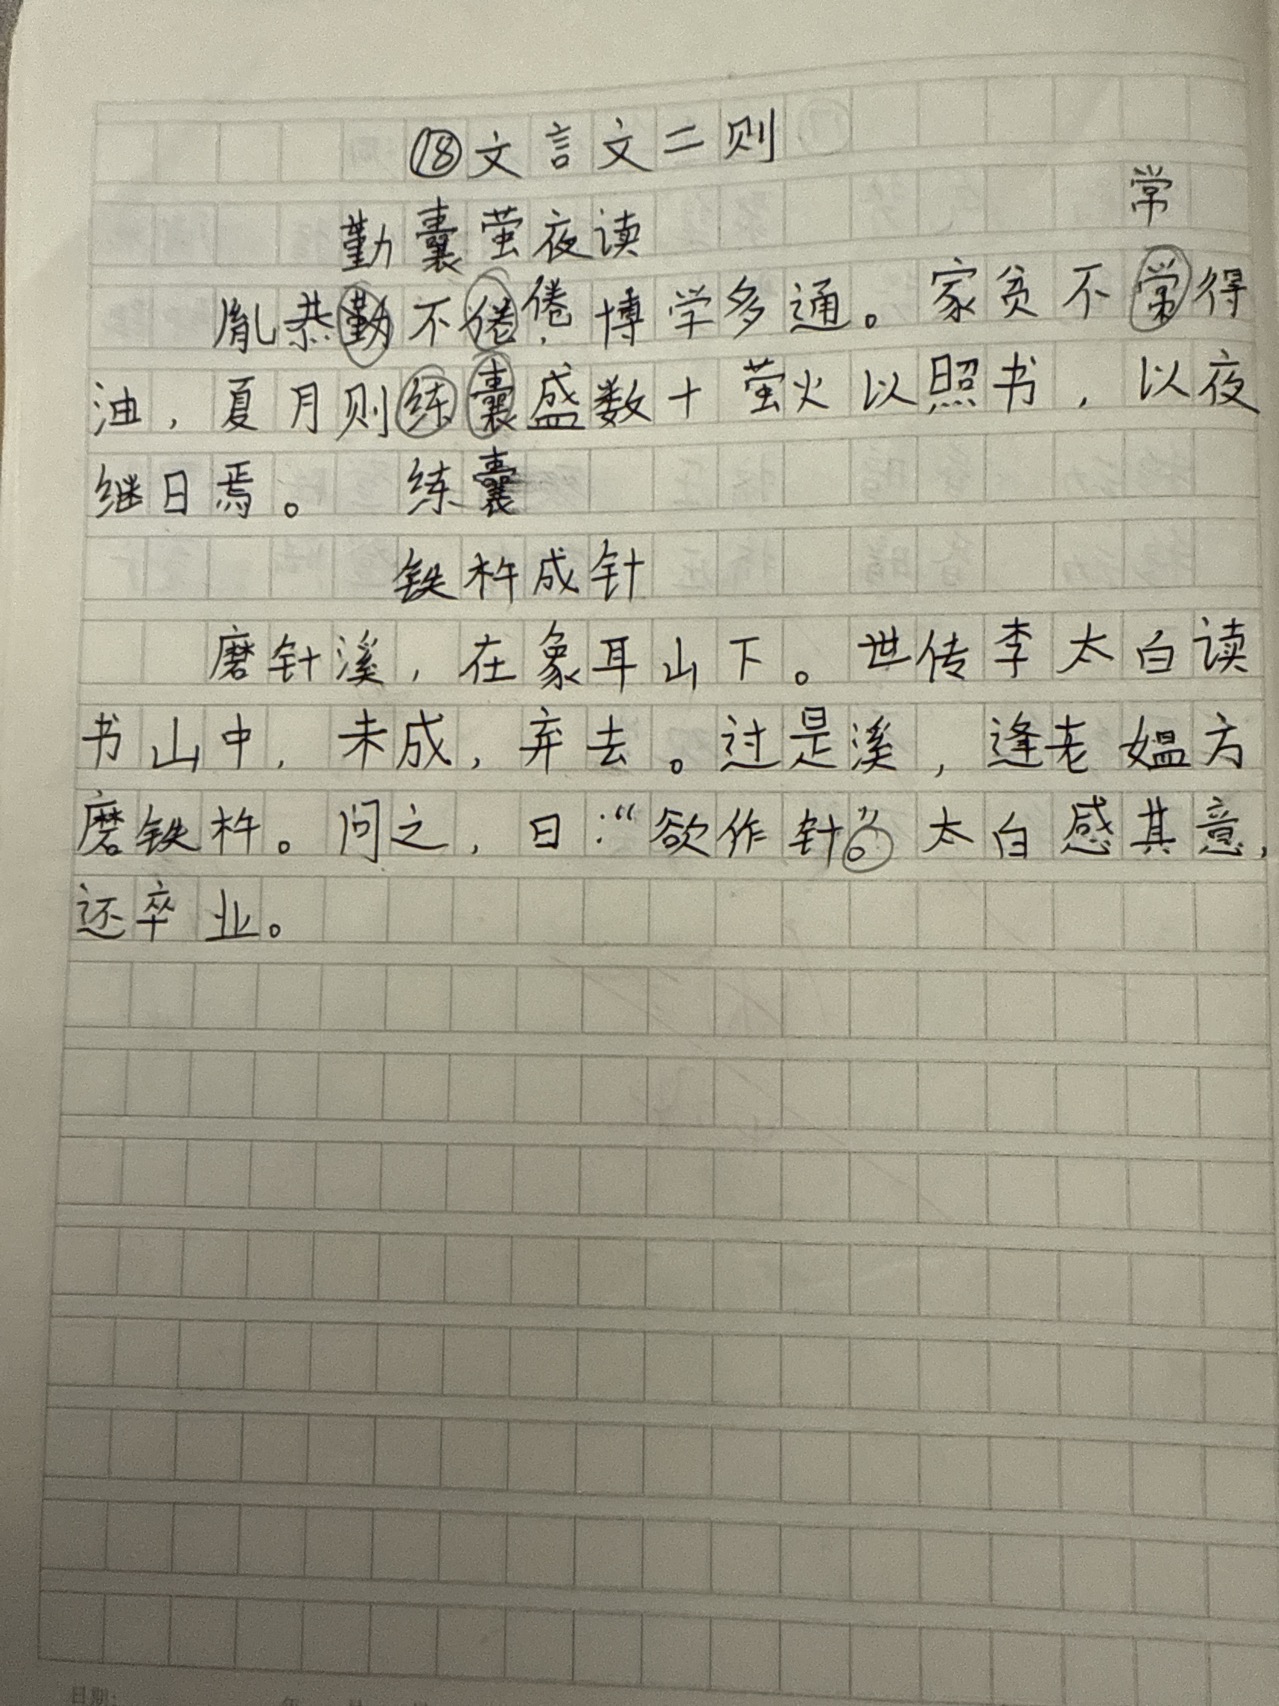 ⑱文言文二则
常
勤囊萤夜读
胤恭勤不倦倦,博学多通。家贫不常得
油,夏月则练囊盛数十萤火以照书,以夜
继日焉。 练囊
铁杵成针
磨针溪,在象耳山下。世传李太白读
书山中,未成,弃去。过是溪,逢老媪方
磨铁杵。问之,曰:“欲作针”。太白感其意,
还卒业。
日期: